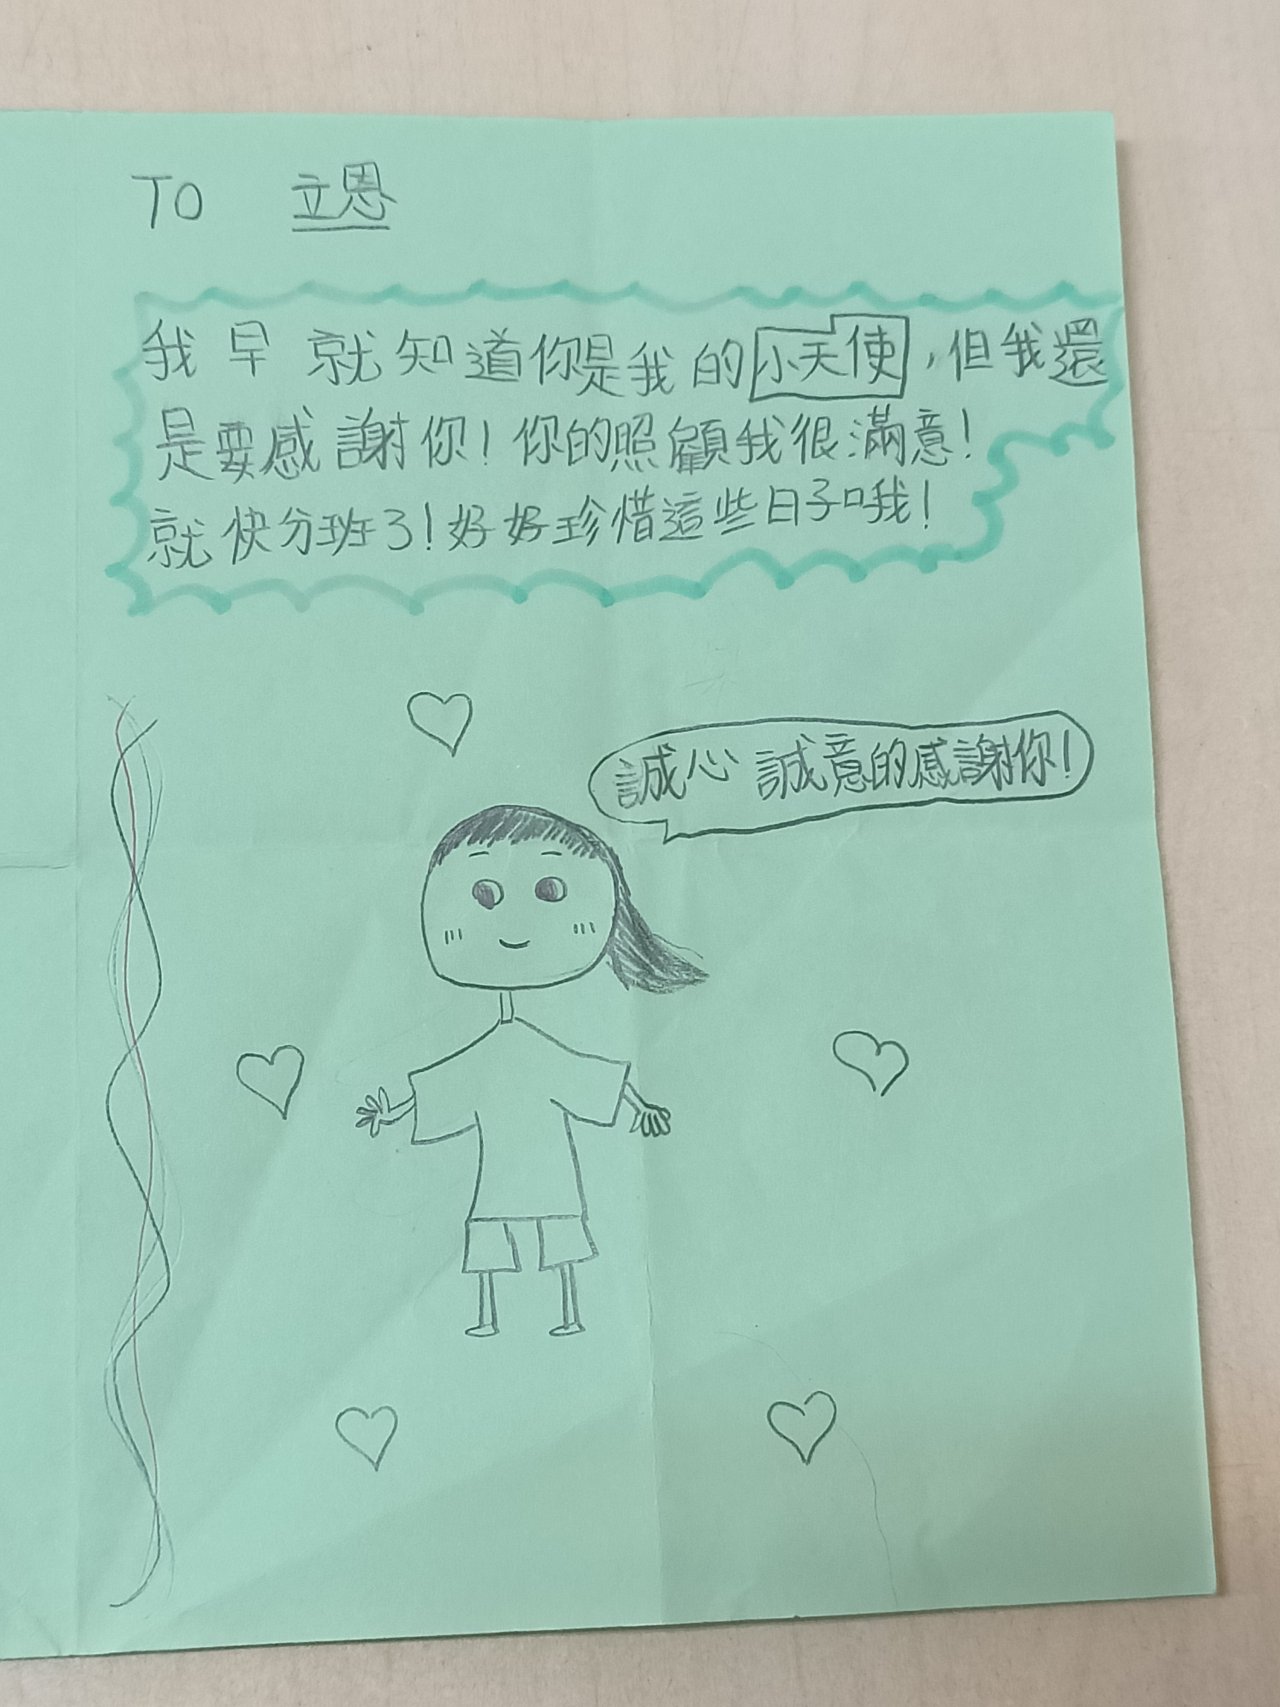 TO 立恩
我早就知道你是我的小天使,但我還
是要感謝你!你的照顧我很滿意!
就快分班了!好好珍惜這些日子哦!
誠心誠意的感謝你!